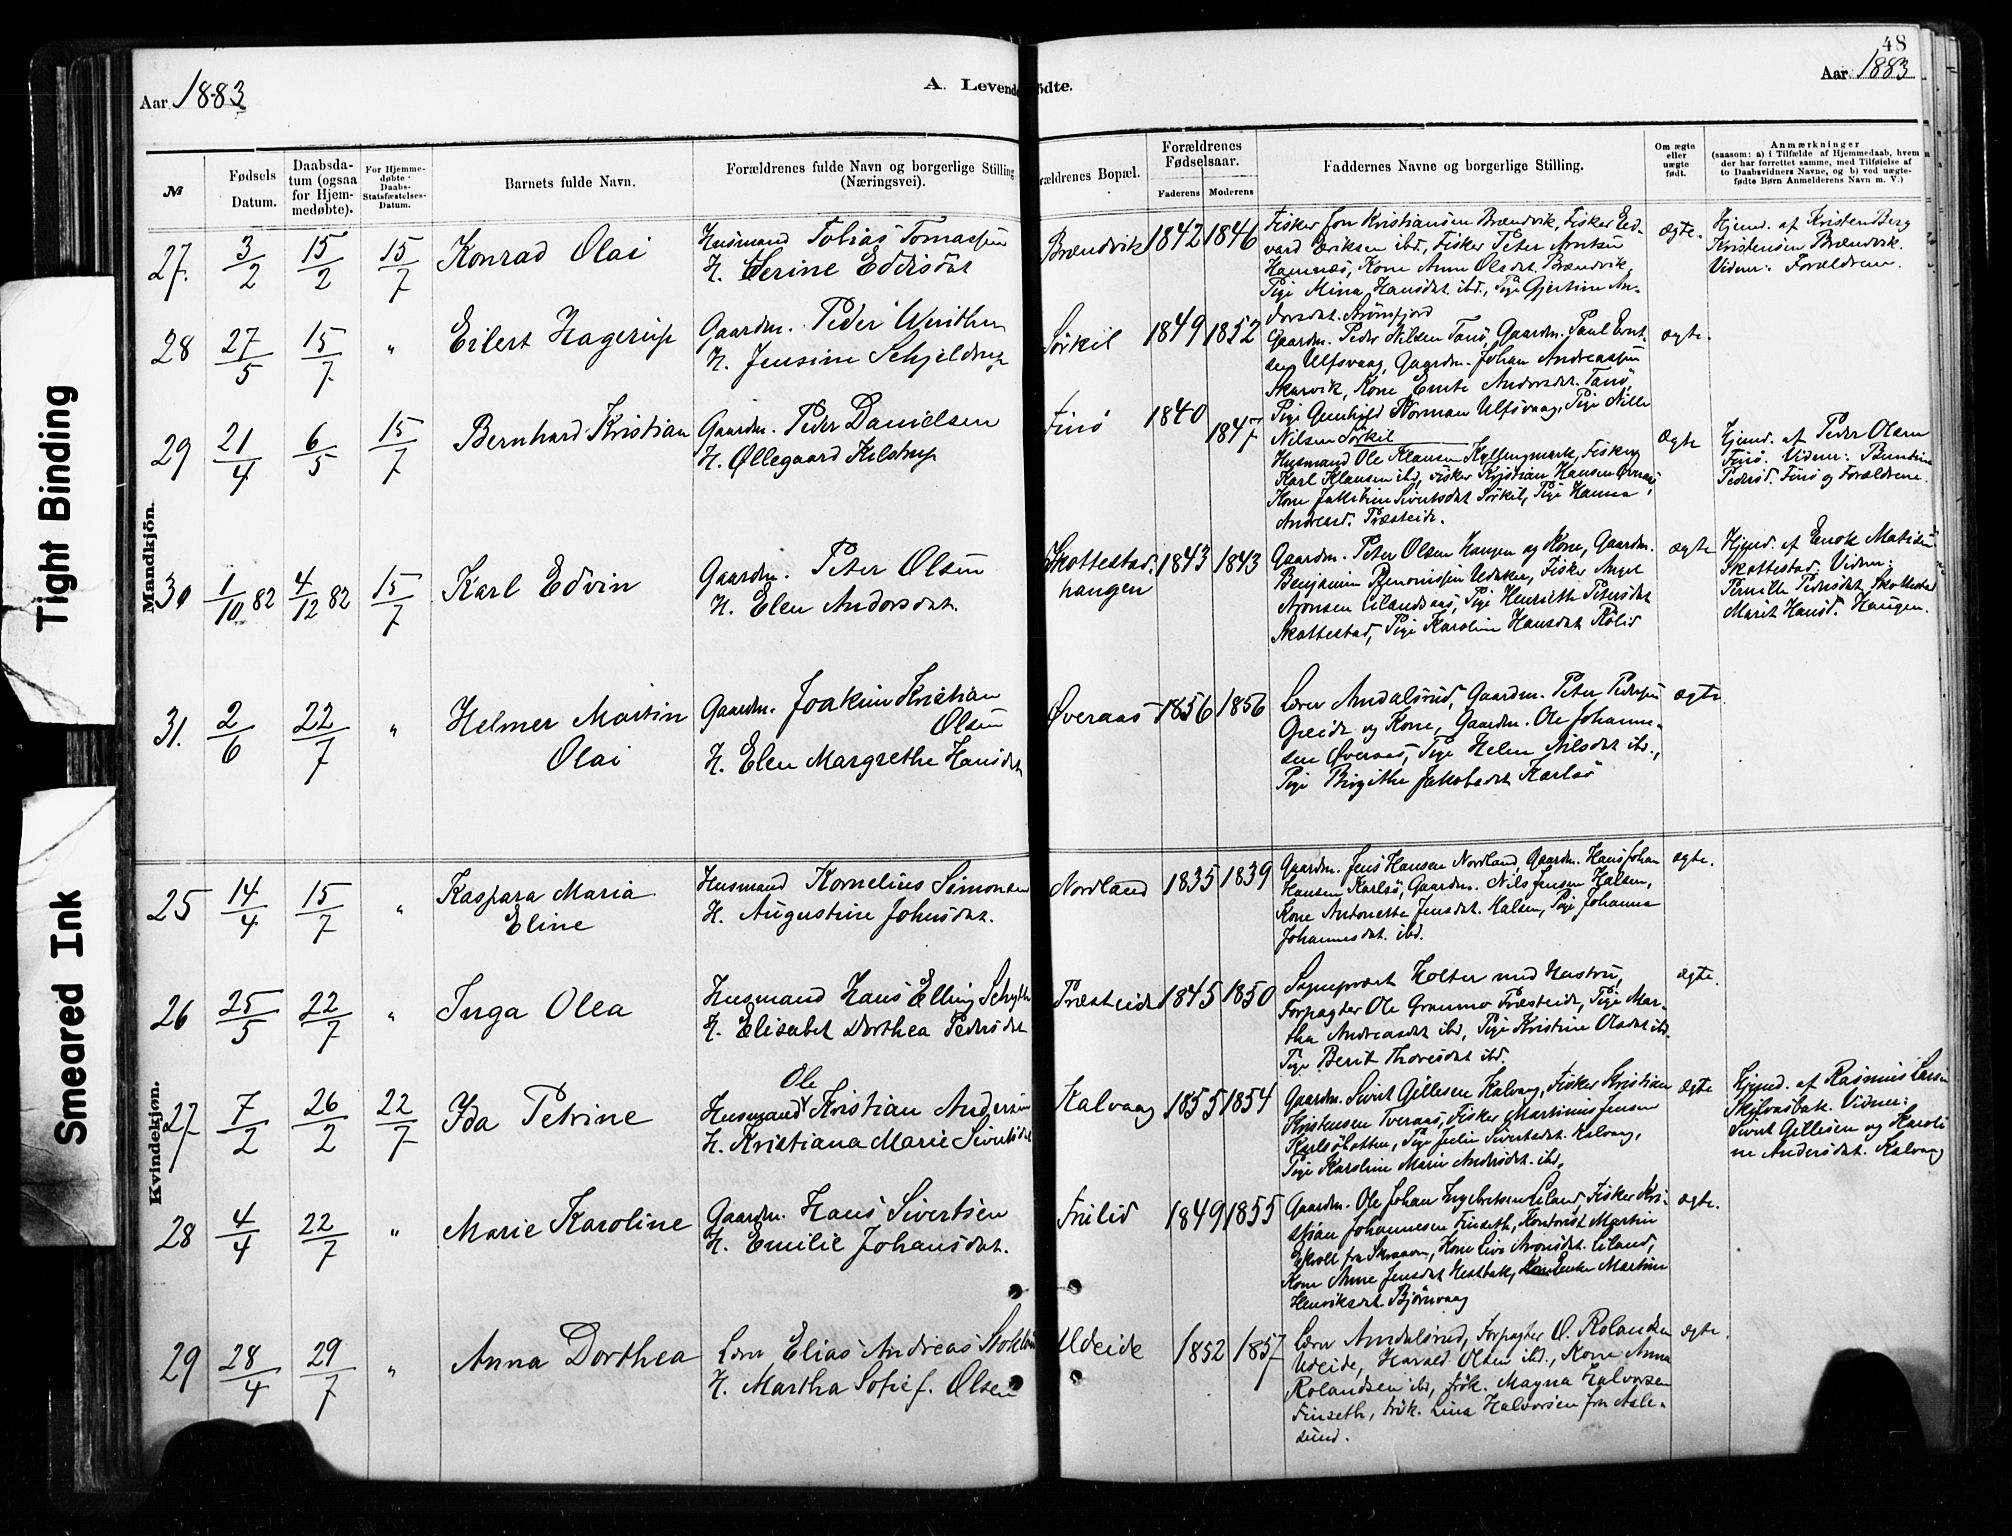 48
Aar 1883
A. Levendefødte.
Aar 1883
№
Fødsels Datum.
Daabsdatum (ogsaa for Hjemmedøbte).
For Hjemmedøbte: Daabs-Statsfæstelses-Datum.
Barnets fulde Navn.
Forældrenes fulde Navn og borgerlige Stilling (Næringsvei).
Forældrenes Bopæl.
Forældrenes Fødselsaar.
Faderens
Moderens
Faddernes Navne og borgerlige Stilling.
Om ægte eller uægte født.
Anmærkninger
(saasom: a) i Tilfælde af Hjemmedaab, hvem der har forrettet samme, med Tilføielse af to Daabsvidners Navne, og b) ved uægtefødte Børn Anmelderens Navn m. V.)
Tight Binding
Smeared Ink
Mandkjön.
27. 3/2 15/2 15/7 Konrad Olai
Husmand Tobias Tomassen
H. Serine Eddisdat
Brændvik 1842 1846
Fisker Jon Kristiansen Brændvik, Fisker Ed-
vard Eriksen ibd, Fisker Peter
Kone Anne Olsdat. Brændvik,
Pige Mina Hansdat. ibd., Pige Gjertine An-
dorsdat.
ægte.
Hjemd. af Kristen Berg
Kristensen Brændvik.
Vidner: Forældrene.
28 27/5 15/7 " Eilert Hagerup
Gaardm. Peder
H. Jensine Schjeldrup
Sørkil 1849 1852
Gaardm. Peder Nilsen Gaardm. Paul
sen Ulfsvaag, Gaardm. Johan Andreassen
Skarvik, Kone Andorsdat.
Pige Gunhild Norman Ulfsvaag, Pige Nille
Nilsen Sørkil
ægte.
29 21/4 6/5 15/7 Bernhard Kristian
Gaardm. Peder Danielsen
H. Øllegaard Kilstrup
1840 1847
Husmand Ole Klausen Fisker
Karl Klausen ibd, Fisker Kristian Hansen
Kone Sivertsdat Sørkil, Pige Hanna
Andreasd. Præsteide.
ægte
Hjemd. af Peder Olsen
Vidner:
Pedersd. og Forældrene.
30 1/10 82 4/12 82 15/7 Karl Edvin
Gaardm. Peter Olsen
H. Elen Andorsdat.
Skottestad-
haugen 1843 1843
Gaardm. Peter Olsen Haugen og Kone, Gaardm.
Benjamin Fisker
Aronsen Pige Henriette Petersdat
Skottestad, Pige Karoline Hansdat Rölid
ægte
Hjemd. af Enok
Skottestad. Vidner:
Pernille Pedersdat Skottestad
Marit Hansd. Haugen.
31. 2/6 22/7 " Helmer Martin
Olai
Gaardm. Joakim Kristian
Olsen
H. Elen Margrethe Hansdat
Øveraas 1856 1856
Lærer Amdalsrud, Gaardm. Peter Pedersen
og Kone, Gaardm. Ole Johanne-
sen Øveraas, Pige Helen Nilsdat ibd.,
Pige Birgithe Jakobsdat Karlsö
ægte
Kvindekjön.
25 14/4 15/7 " Kaspara Maria
Eline
Husmand Kornelius Simonsen
H. Augustine Johnsdat.
Nordland 1835 1839
Gaardm. Jens Hansen Nordland, Gaardm. Hans Johan
Hansen Karlsö, Gaardm. Nils Jensen Halsen,
Kone Antonette Jensdat. Halsen, Pige Johanna
Johannesdat. ibd.
ægte.
26 25/5 22/7 " Inga Olea
Husmand Hans Elling
H. Elisabet Dorthea Pedersdat
Præsteide 1845 1850
Sogneprest Holter med Hustru,
Forpagter Ole Grønmo Præsteide, Pige Mar-
tha Andreasdat ibd, Pige Kristine Olsdat ibd.
Pige Berit Thoresdat ibd.
ægte.
27 7/2 26/2 22/7 Ida Petrine
Ole
Husmand Kristian Andersen
H. Kristiana Marie Sivertsdat
Kalvaag 1855 1854
Gaardm. Sivert Gillesen Kalvaag, Fisker Kristian
Kristensen Tveraas, Fisker Martinus Jensen
Pige Julie Sivertsdat. Kalvaag,
Pige Karoline Marie Andersdat. ibd.
ægte
Hjemd. af Rasmus Larsen
Vidner:
Sivert Gillesen og Karoli
ne Andersdat. Kalvaag
28 4/4 22/7 " Marie Karoline
Gaardm. Hans Sivertsen
H. Emilie Johansdat.
Frilid 1849 1855
Gaardm. Ole Johan Ingebrektsen Liland, Fisker Kri-
stian Johannesen Finseth, Martin
fra Skraaen, Kone Live Aronsdat. Liland,
Kone Anne Jensdat Hestbak, Enke Martine
Henriksdat Bjørnvaag
ægte.
29 28/4 29/7 " Anna Dorthea
Lærer Elias Andreas
H. Martha Sofie f. Olsen
Udeide 1852 1857
Lærer Amdalsrud, Forpagter O. Rolandsen
Udeide, Harald Olsen ibd., Kone Anna
Rolandsen ibd, frök. Magna Halvorsen
Finseth, frök. Lina Halvorsen fra Aale-
sund.
ægte.